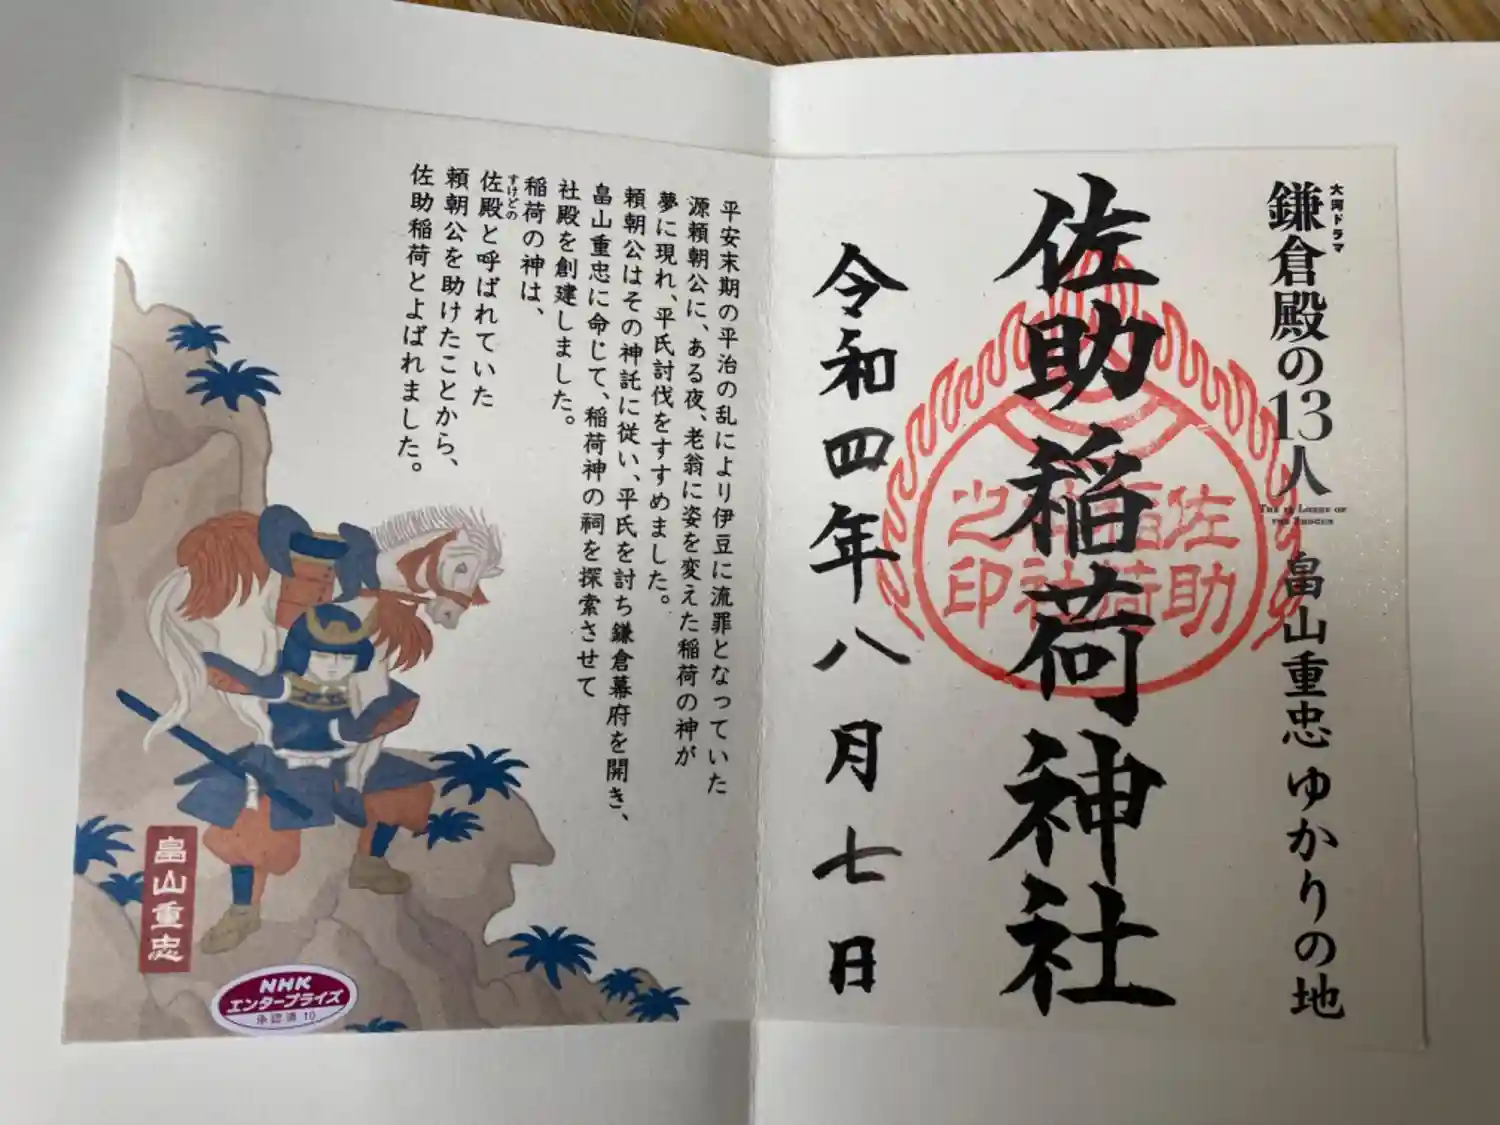 大河ドラマ
鎌倉殿の13人
THE 13 LORDS OF
THE SHOGUN
畠山重忠ゆかりの地
佐助稲荷神社
佐助
稲荷
神社
之印
令和四年八月七日
平安末期の平治の乱により伊豆に流罪となっていた
源頼朝公に、ある夜、老翁に姿を変えた稲荷の神が
夢に現れ、平氏討伐をすすめました。
頼朝公はその神託に従い、平氏を討ち鎌倉幕府を開き、
畠山重忠に命じて、稲荷神の祠を探索させて
社殿を創建しました。
稲荷の神は、
すけどの
佐殿と呼ばれていた
頼朝公を助けたことから、
佐助稲荷とよばれました。
畠山重忠
NHK
エンタープライズ
承認済 10